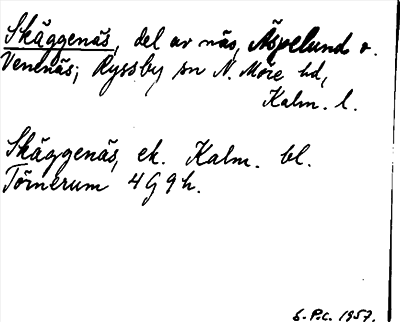 Skäggenäs, del av näs, Äspelund o.
Venenäs; Ryssby sn N. Möre hd,
Kalm. l.
Skäggenäs, ek. Kalm. bl.
Törnerum 4G9h.
S.P.C. 1957.